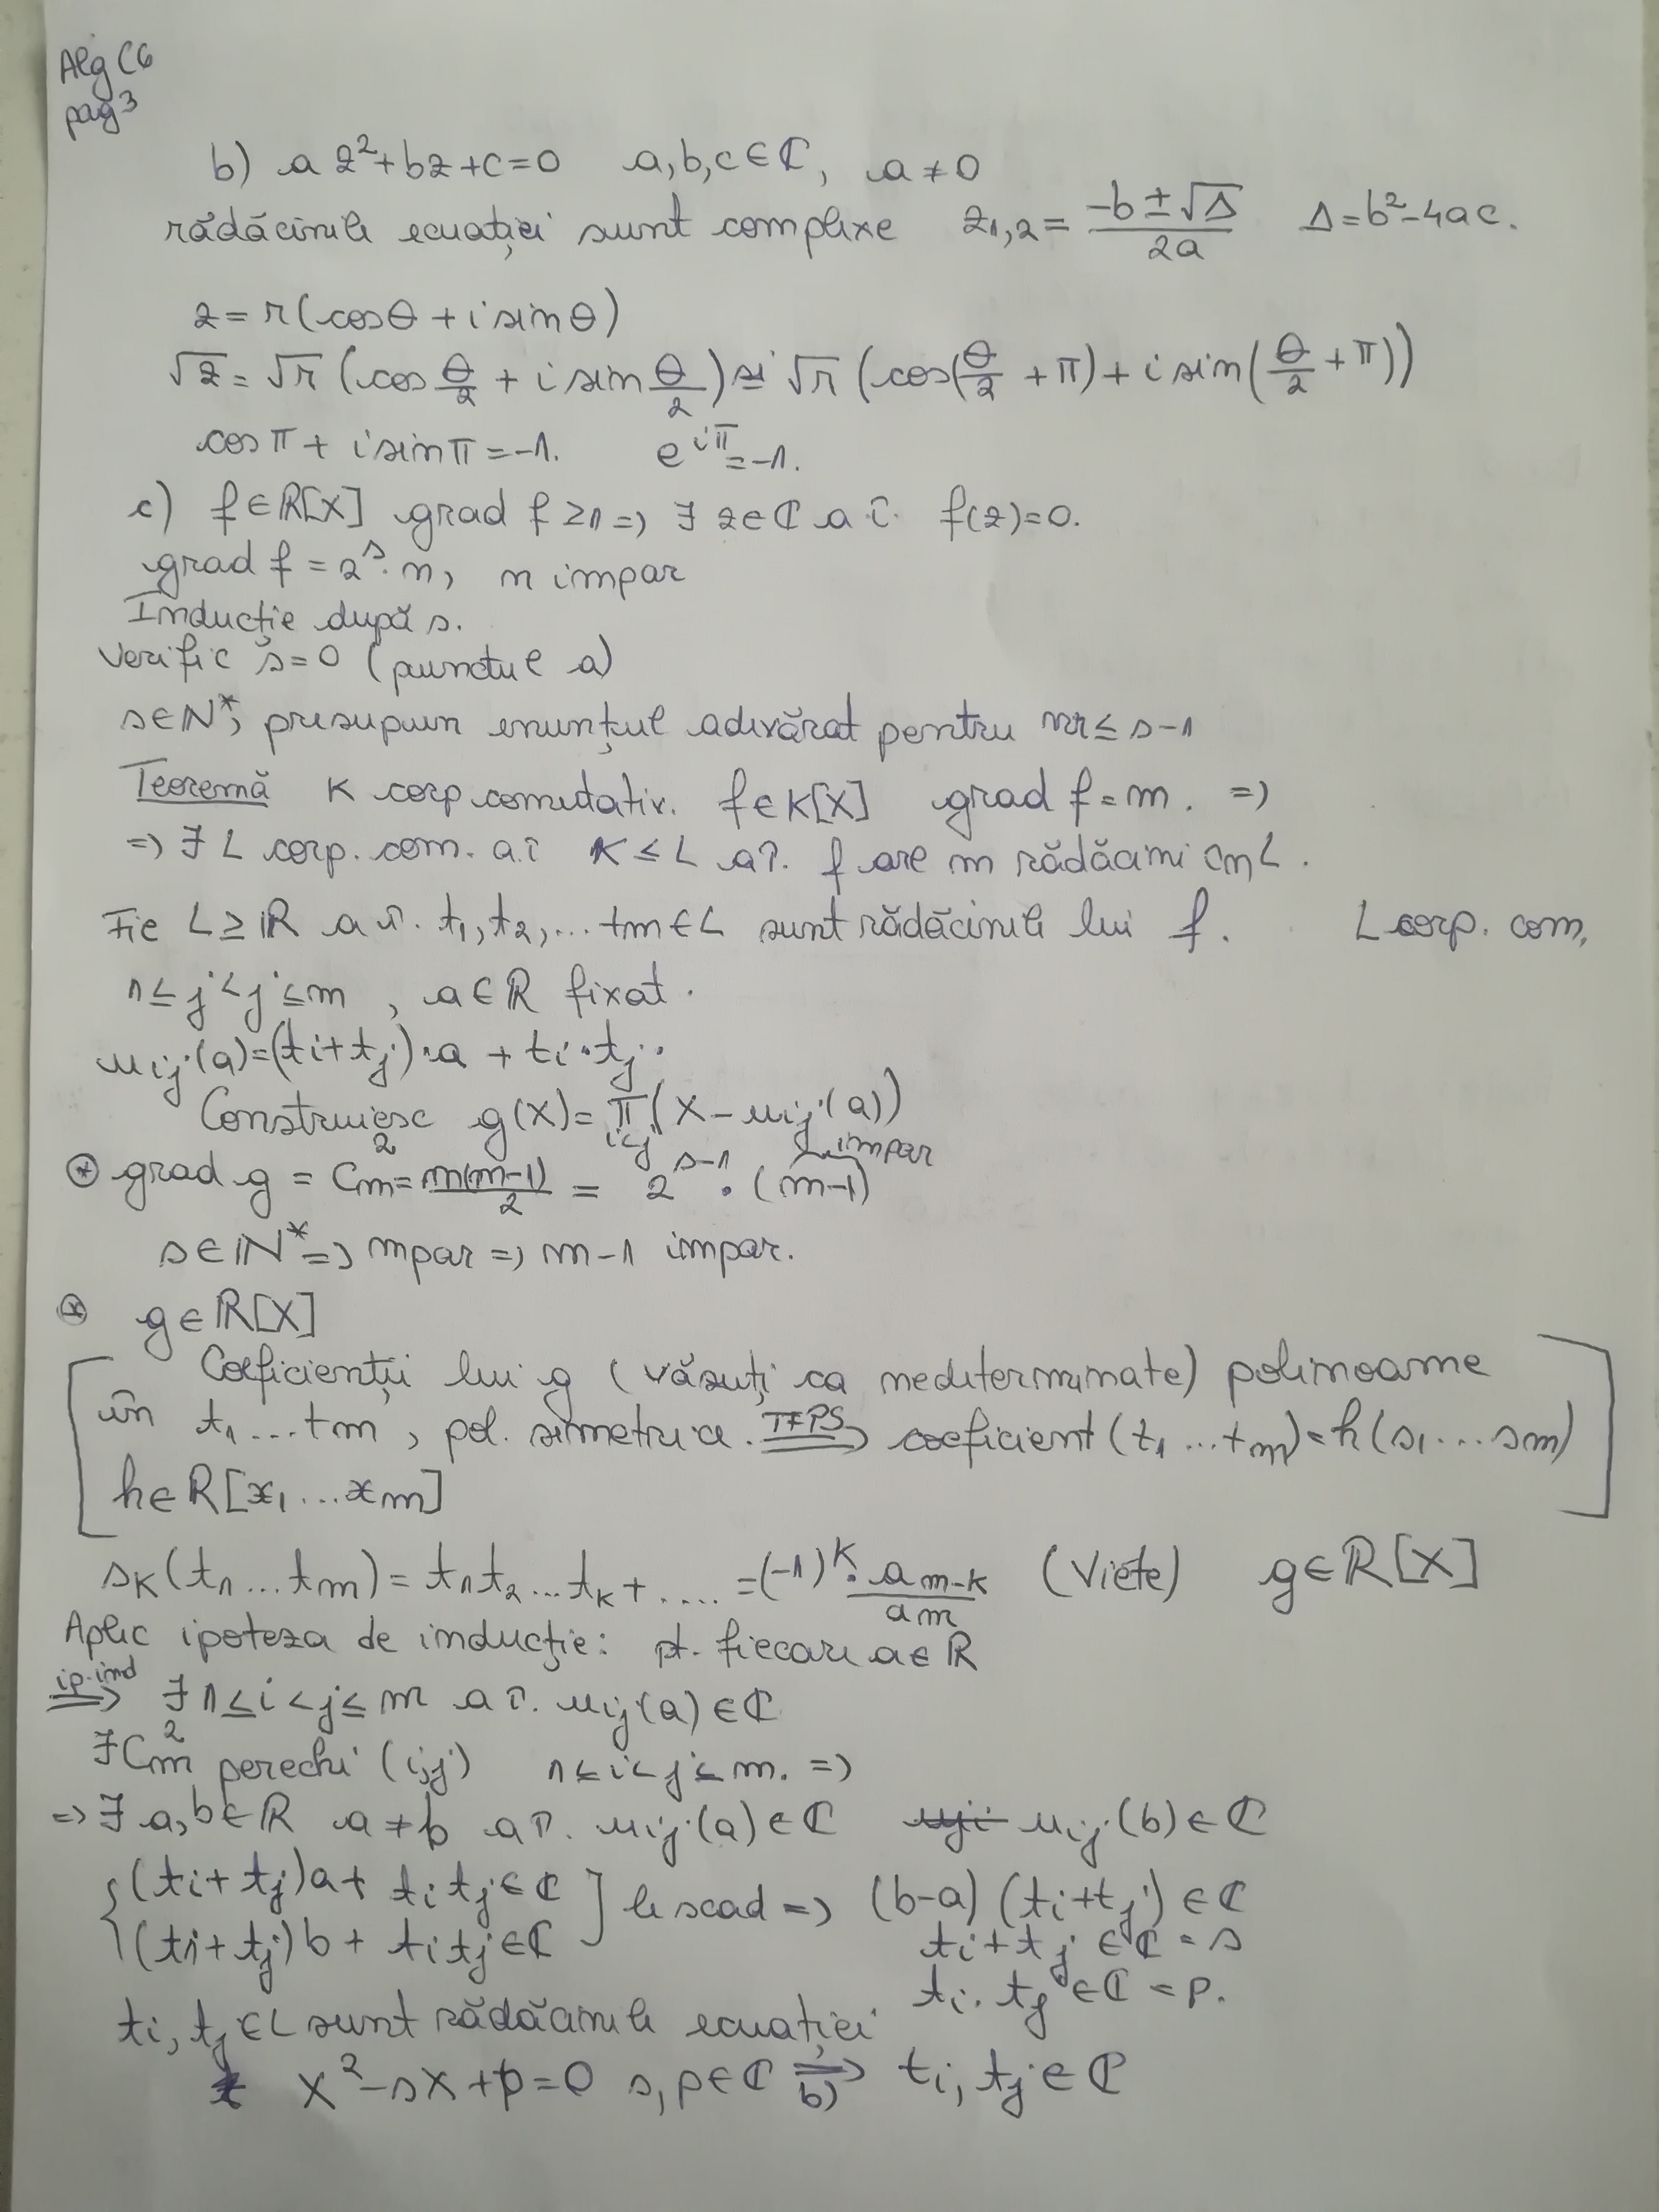 Alg C6
pag 3
b) a z²+bz+c=0 a,b,c∈ℂ, a≠0
rădăcinile ecuației sunt complexe z1,2 = (-b±√Δ)/2a Δ=b²-4ac.
z = r(cosθ + i sinθ)
√z = √r (cos θ/2 + i sin θ/2) și √r (cos(θ/2 + π) + i sin(θ/2 + π))
cos π + i sin π = -1. e^iπ = -1.
c) f∈ℝ[X] grad f ≥1 => ∃ z∈ℂ a î. f(z)=0.
grad f = 2^s · n, n impar
Inducție după s.
Verific s=0 (punctul a)
s∈ℕ*, presupun enunțul adevărat pentru nr ≤ s-1
Teoremă K corp comutativ. f∈K[X] grad f = m. =>
=> ∃ L corp. com. a.î K ≤ L aî. f are m rădăcini în L.
Fie L ≥ ℝ a î. t1, t2, ... tm ∈ L sunt rădăcinile lui f. L corp. com,
1 ≤ j < j ≤ m , a∈ℝ fixat.
uij(a) = (ti+tj)·a + ti·tj.
Construiesc g(X) = π i<j (X - uij(a))
⊛ grad g = Cm² = m(m-1)/2 = 2^s-1 · (m-1) impar
s∈ℕ* => m par => m-1 impar.
⊛ g∈ℝ[X]
[ Coeficienții lui g (văzuți ca nedeterminate) polinoame
în t1 ... tm, pol. simetrice. TFPS => coeficient (t1 ... tm) = h(s1 ... sm)
h∈ℝ[x1 ... xm] ]
sK(t1 ... tm) = t1t2 ... tK + .... = (-1)^K · am-K/am (Viete) g∈ℝ[X]
Aplic ipoteza de inducție: pt. fiecare a∈ℝ
ip. ind => ∃ 1 ≤ i < j ≤ m a î. uij(a)∈ℂ
∃ Cm² perechi (i,j) 1 ≤ i < j ≤ m. =>
=> ∃ a, b∈ℝ a≠b aî. uij(a)∈ℂ uij(b)∈ℂ
{ (ti+tj)a + ti tj∈ℂ ] le scad => (b-a)(ti+tj)∈ℂ
(ti+tj)b + ti tj∈ℂ ti+tj∈ℂ = s
ti · tj∈ℂ = p.
ti, tj∈L sunt rădăcinile ecuației
X² - sX + p = 0 s, p∈ℂ =b)=> ti, tj∈ℂ